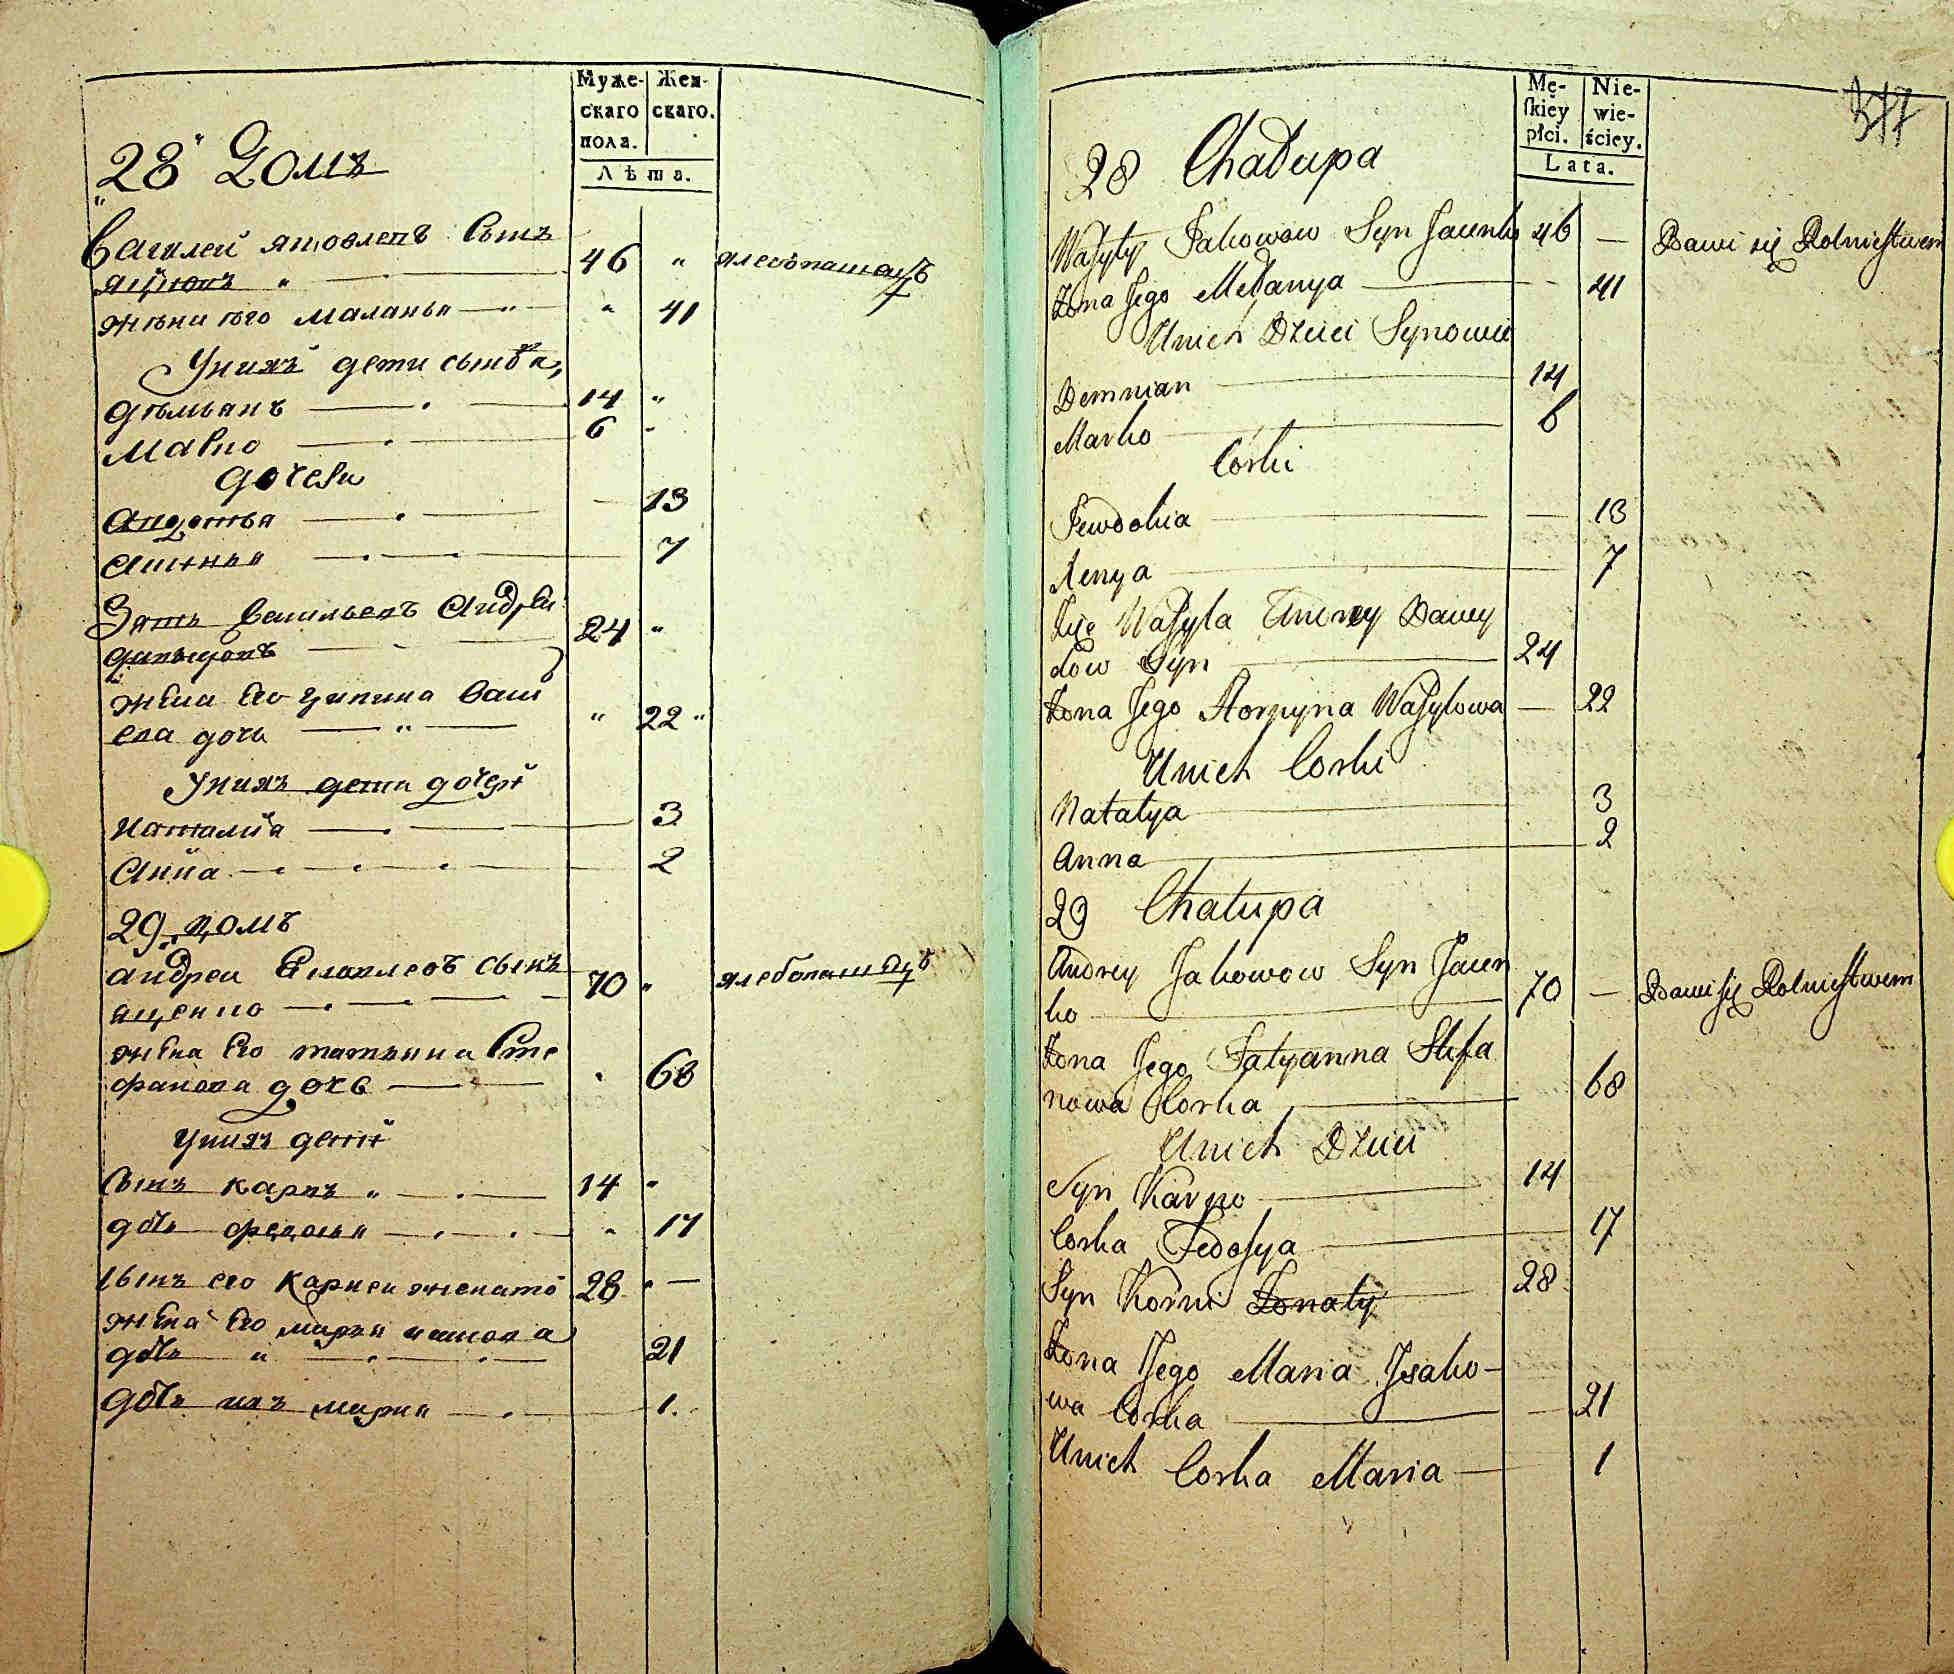 Муже-
скаго
пола.
Жен-
скаго.
Лѣта.
28 Домъ
Василей Яковлевъ Сынъ
46 " хлебопашецъ
жена его маланья — " 41
Унихъ дети сынова,
демьянъ — 14 "
Марко — 6 "
дочери
Авдотья — 13
Ксенья — 7
Зять Васильевъ Андрей
давыдовъ — 24 "
жена Его Васи
ева дочь — " 22 "
Унихъ дети дочери
Наталия — 3
Анна — 2
29 домъ
андреи Яковлевъ сынъ
яценко — 70 " хлебопашецъ
жена Его татьяна Сте
фанова дочь — " 68
Унихъ дети
Сынъ карпъ " — 14 "
дочь федосья — " 17
сынъ его Карнеи женатой 28 " —
жена Его марья исакова
дочь " — 21
дочь ихъ мария — 1.
377
Mę-
skiey
płci.
Nie-
wie-
ściey.
Lata.
28 Chałupa
Wasyly Jakowow Syn Jacenko 46 — Bawi się Rolnictwem
Żona Jego Mełanya — 41
Unich Dzieci Synowie
Demnian — 14
Marko — 6
Córki
Fewdokia — — 13
Xenya — 7
Zięc Wasyla Andrey Dawy
dow Syn — 24
Żona Jego Horpyna Wasylowa — 22
Unich Corki
Natalya — 3
Anna — 2
29 Chałupa
Andrey Jakowow Syn Jacen
ko — 70 — Bawi się Rolnictwem
Żona Jego Tatyanna Stefa
nowa Corka — 68
Unich Dzieci
Syn Karpo — 14
Corka Fedosya — 17
Syn Korni Żonaty — 28
Żona Jego Maria Isako-
wa Corka — — 21
Unich Corka Maria — 1